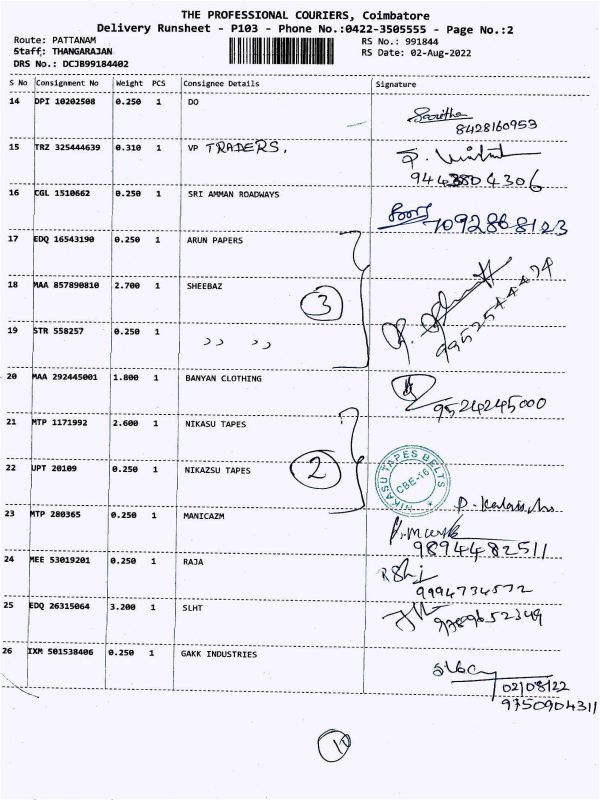 THE PROFESSIONAL COURIERS, Coimbatore
Delivery Runsheet - P103 - Phone No.:0422-3505555 - Page No.:2
Route: PATTANAM RS No.: 991844
Staff: THANGARAJAN RS Date: 02-Aug-2022
DRS No.: DCJB99184402
S No Consignment No Weight PCS Consignee Details Signature
14 DPI 10202508 0.250 1 DO
8428160953
15 TRZ 325444639 0.310 1 VP TRADERS.
16 CGL 1510662 0.250 1 SRI AMMAN ROADWAYS
7092868123
17 EDQ 16543190 0.250 1 ARUN PAPERS
18 MAA 857890810 2.700 1 SHEEBAZ
3
19 STR 558257 0.250 1 ,, ,,
20 MAA 292445001 1.800 1 BANYAN CLOTHING
9524245000
21 MTP 1171992 2.600 1 NIKASU TAPES
22 UPT 20109 0.250 1 NIKAZSU TAPES
2
NIKASU TAPES BELTS
CBE-16
23 MTP 280365 0.250 1 MANICAZM
9894482511
24 MEE 53019201 0.250 1 RAJA
9994734572
25 EDQ 26315064 3.200 1 SLHT
9789652349
26 IXM 501538406 0.250 1 GAKK INDUSTRIES
02/08/22
9750904311